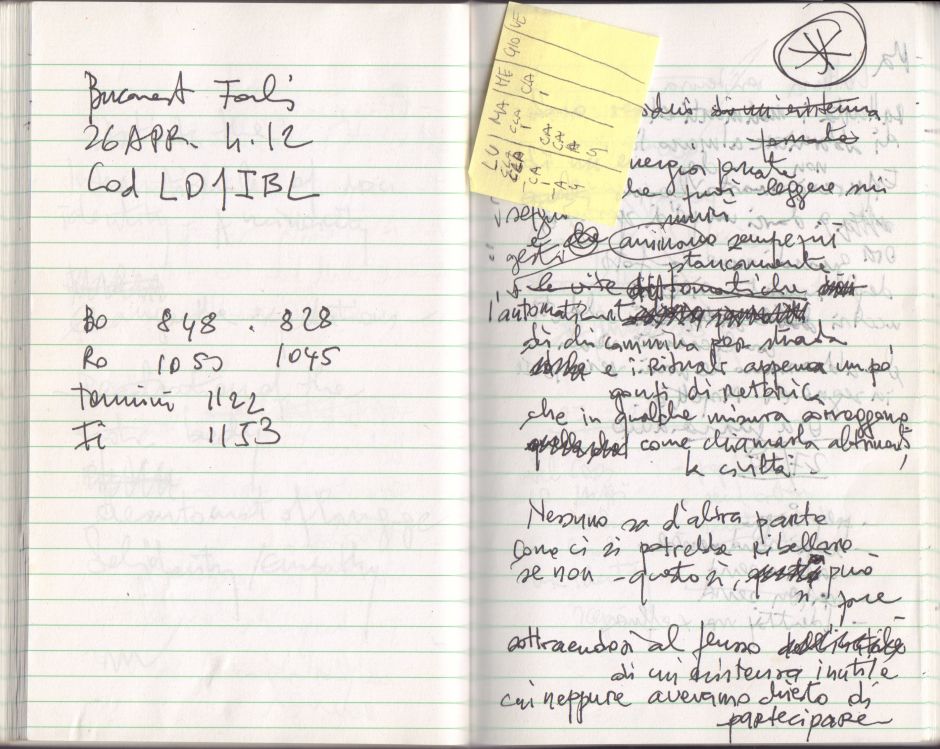 Bucarest Forlì
26 APR. h. 12
Cod LD1IBL
Bo 848 . 828
Ro 1053 1045
Termini 1122
Fi 1153
LU | MA | ME | GIO | VE
CLA CLA CLA
CA CA
di un'esistenza
che può leggere nei
gesti e animano sempre più
stancamente
le vite
l'automa
di chi cammina per strada
e i rituali appena un pó
gonfi di retorica
che in qualche misura sorreggono
come chiamarla altrimenti,
la civiltà
Nessuno sa d'altra parte
come ci si potrebbe ribellare
se non - questo sì, può
si fare
sottraendosi al flusso
di un'esistenza inutile
cui neppure avevamo chiesto di
partecipare